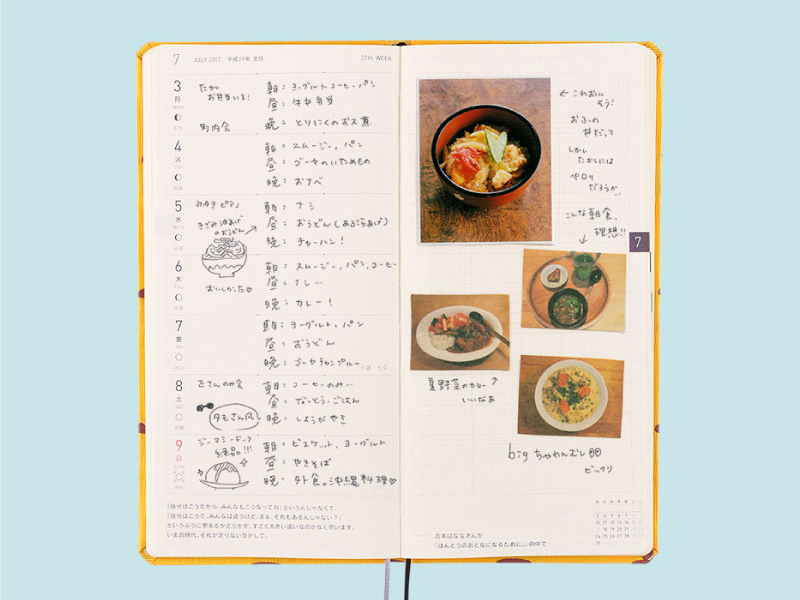 7 JULY 2017 平成29年 文月 27th WEEK
3
月
たかし
お弁当いる!
町内会
朝: ヨーグルト コーヒー パン
昼:
晩: とりにくのお
4
火
朝: スムージー, パン
昼: ゴーヤのいためもの
晩: おすべ
5
水
きざみ油あげ
のおうどん
おいしかった
朝: ナシ
昼: おうどん(あぶらあげ)
晩: チャーハン!
6
木
朝: スムージー, パン, コーヒー
昼: ナシ…
晩: カレー!
7
金
朝: ヨーグルト, パン
昼: おうどん
晩: ゴーヤチャンプルー
小暑・七夕
8
土
朝: コーヒーのみ…
昼: なっとう, ごはん
晩: しょうがやき
9
日
ジーマミードーフ
絶品!!!
朝: ビスケット, ヨーグルト
昼: やきそば
晩: 外食。沖縄料理♡
「自分はこうだから、みんなもこうなってね」というんじゃなくて、
「自分はこうで、みんなは違うけど、まぁ、それもあるんじゃない?」
というふうに思えるかどうかが、すごく大きい違いなのかなと思います。
いまの時代、それが足りない気がして。
← これおいし
そう!
おふの
丼だって
しかし
たかしには
ペロリ
だろうか…
こんな朝食、
理想!!
7
夏野菜のカレー
いいなあ
big ちゃわんむし
ビックリ
吉本ばななさんが
『ほんとうのおとなになるために。』の中で